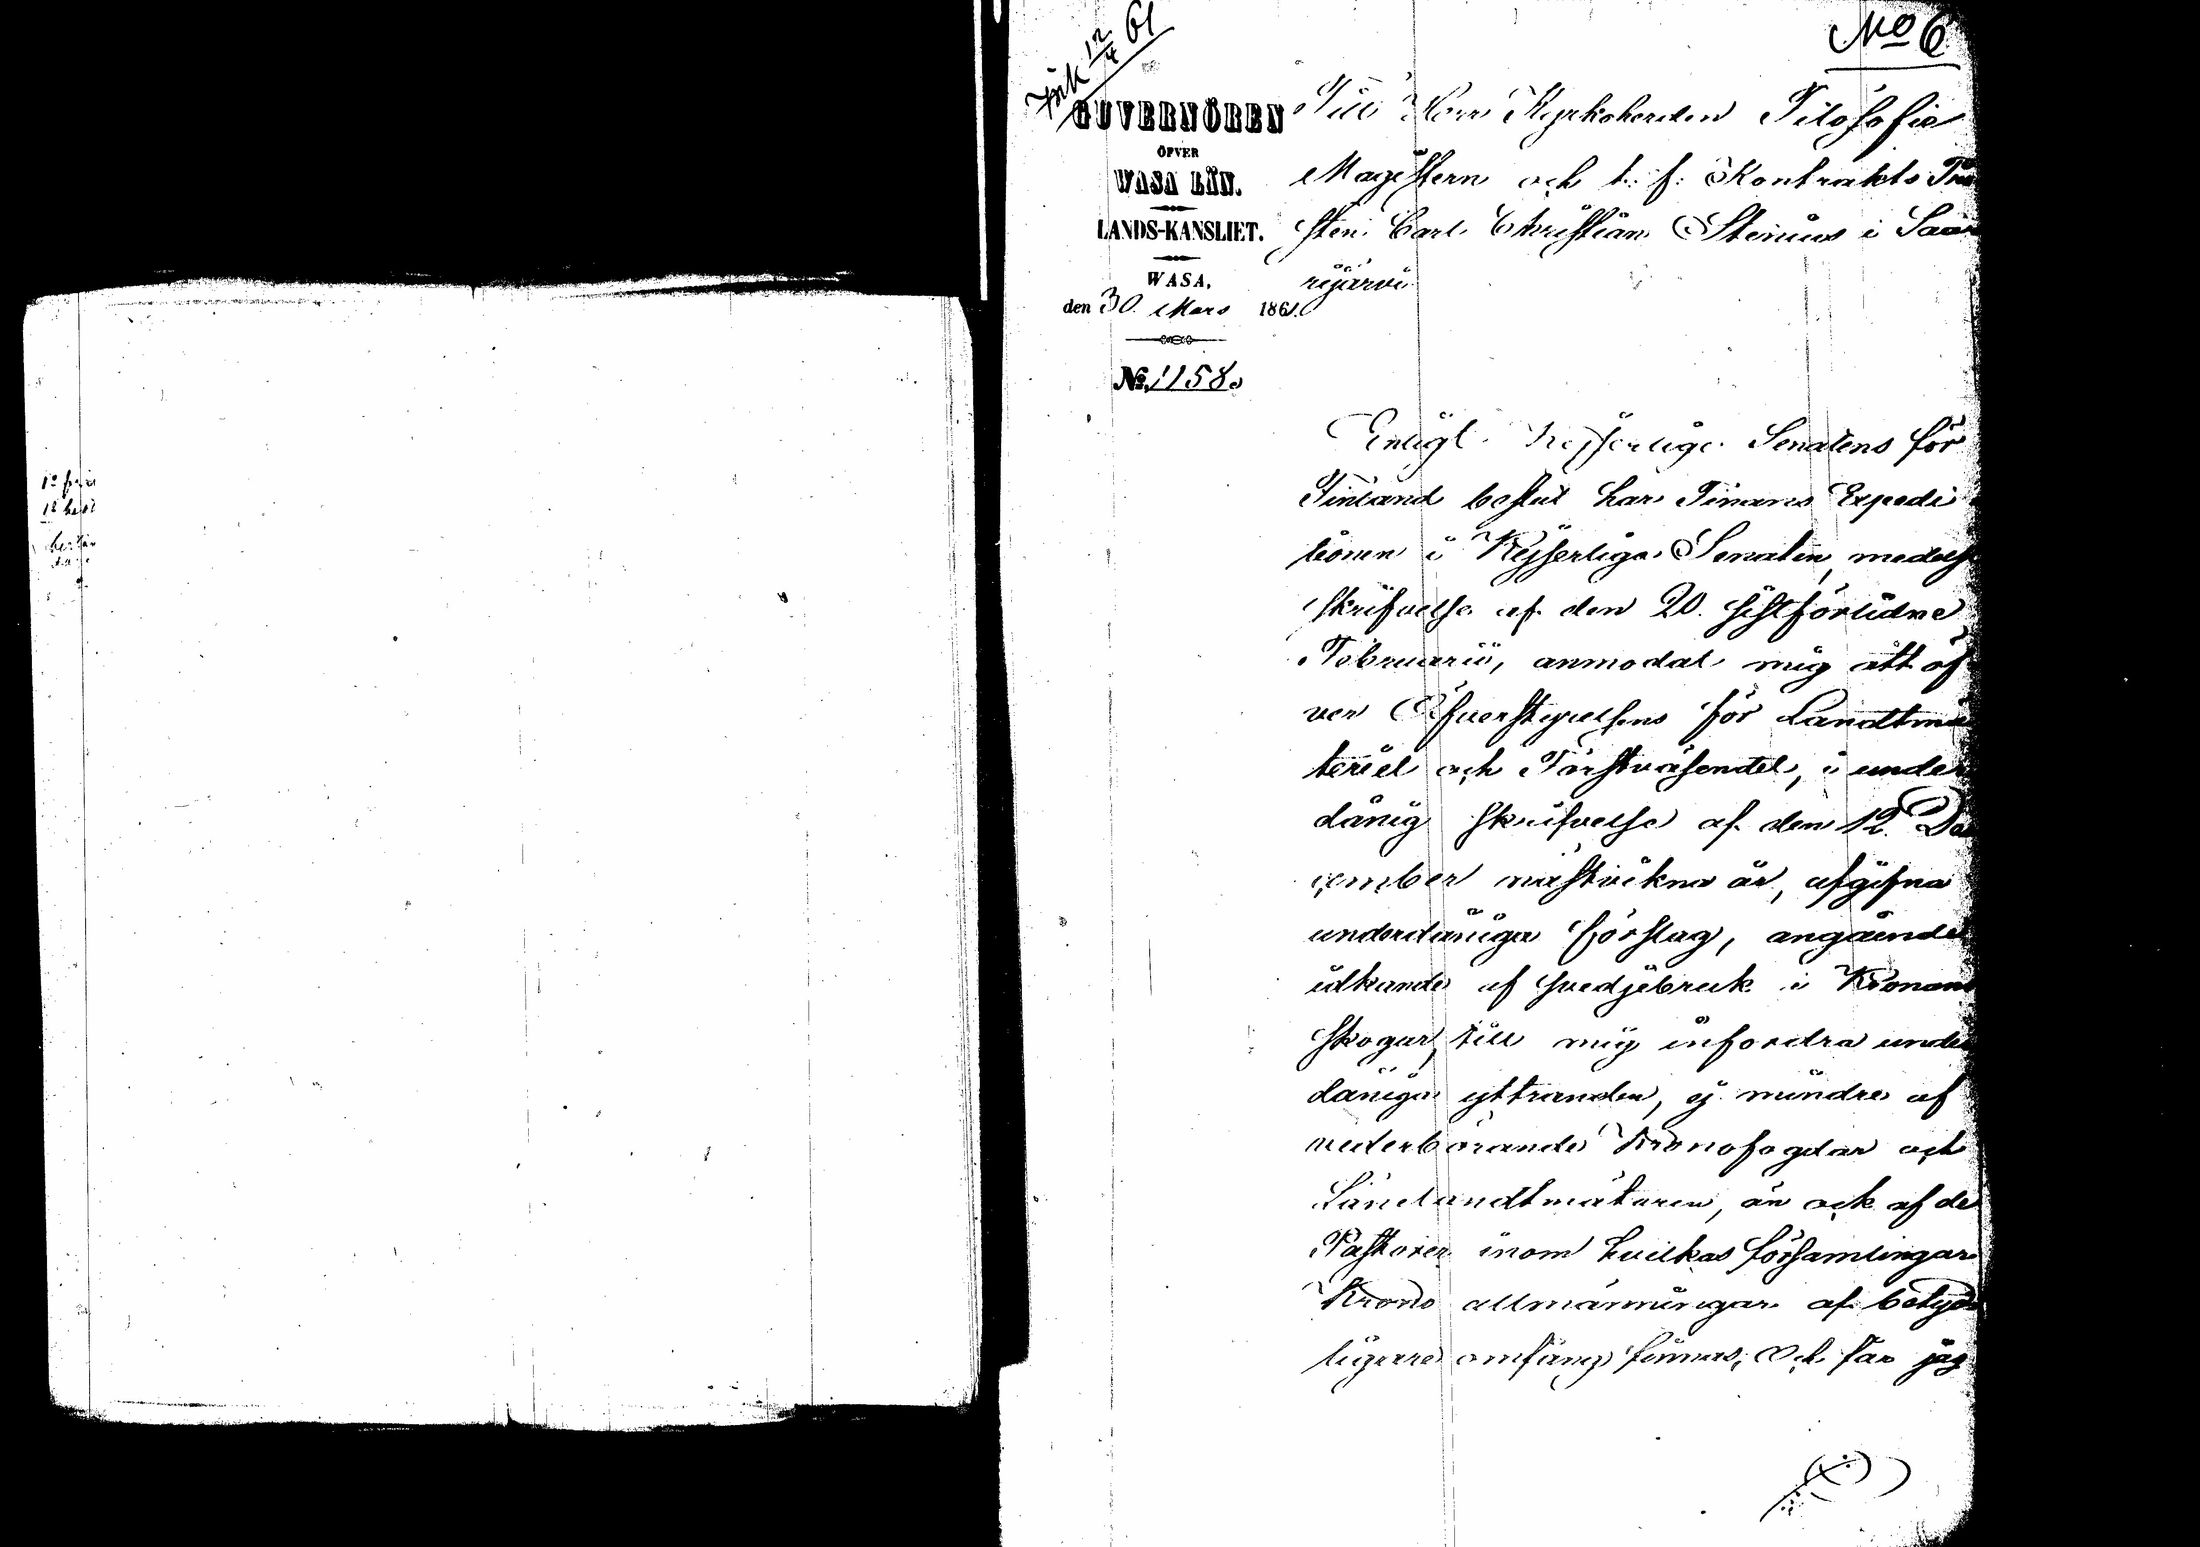 Ink 12/4 61
No 6
GUVERNÖREN
ÖFVER
WASA LÄN.
LANDS-KANSLIET.
WASA,
den 30. Mars 1861.
No. 1158.
Till Herr Kyrkoherden Filosofie
Magistern och t. f. Kontrakts Pro
sten Carl Christian Stenius i Saar
rijärvi
Enligt Kejserliga Senatens för
Finland beslut har Finans Expedi
tionen i Kejserliga Senaten, medelst
skrifvelse af den 20. sistförlidne
Februarii, anmodat mig att öf
ver Öfverstyrelsens för Landtmä
teriet och Forstväsendet, i under
dånig skrifvelse af den 12. De
cember nästvikne år, afgifna
underdåniga förslag, angående
idkande af svedjebruk i Kronans
skogar, till mig infordra under
dåniga yttranden, ej mindre af
vederbörande Kronofogdar och
Länelandtmätaren, än ock af de
Pastorer inom hvilkas församlingar
Krono allmänningar af betyd
ligare omfång finnas; Och får jag
1o
12